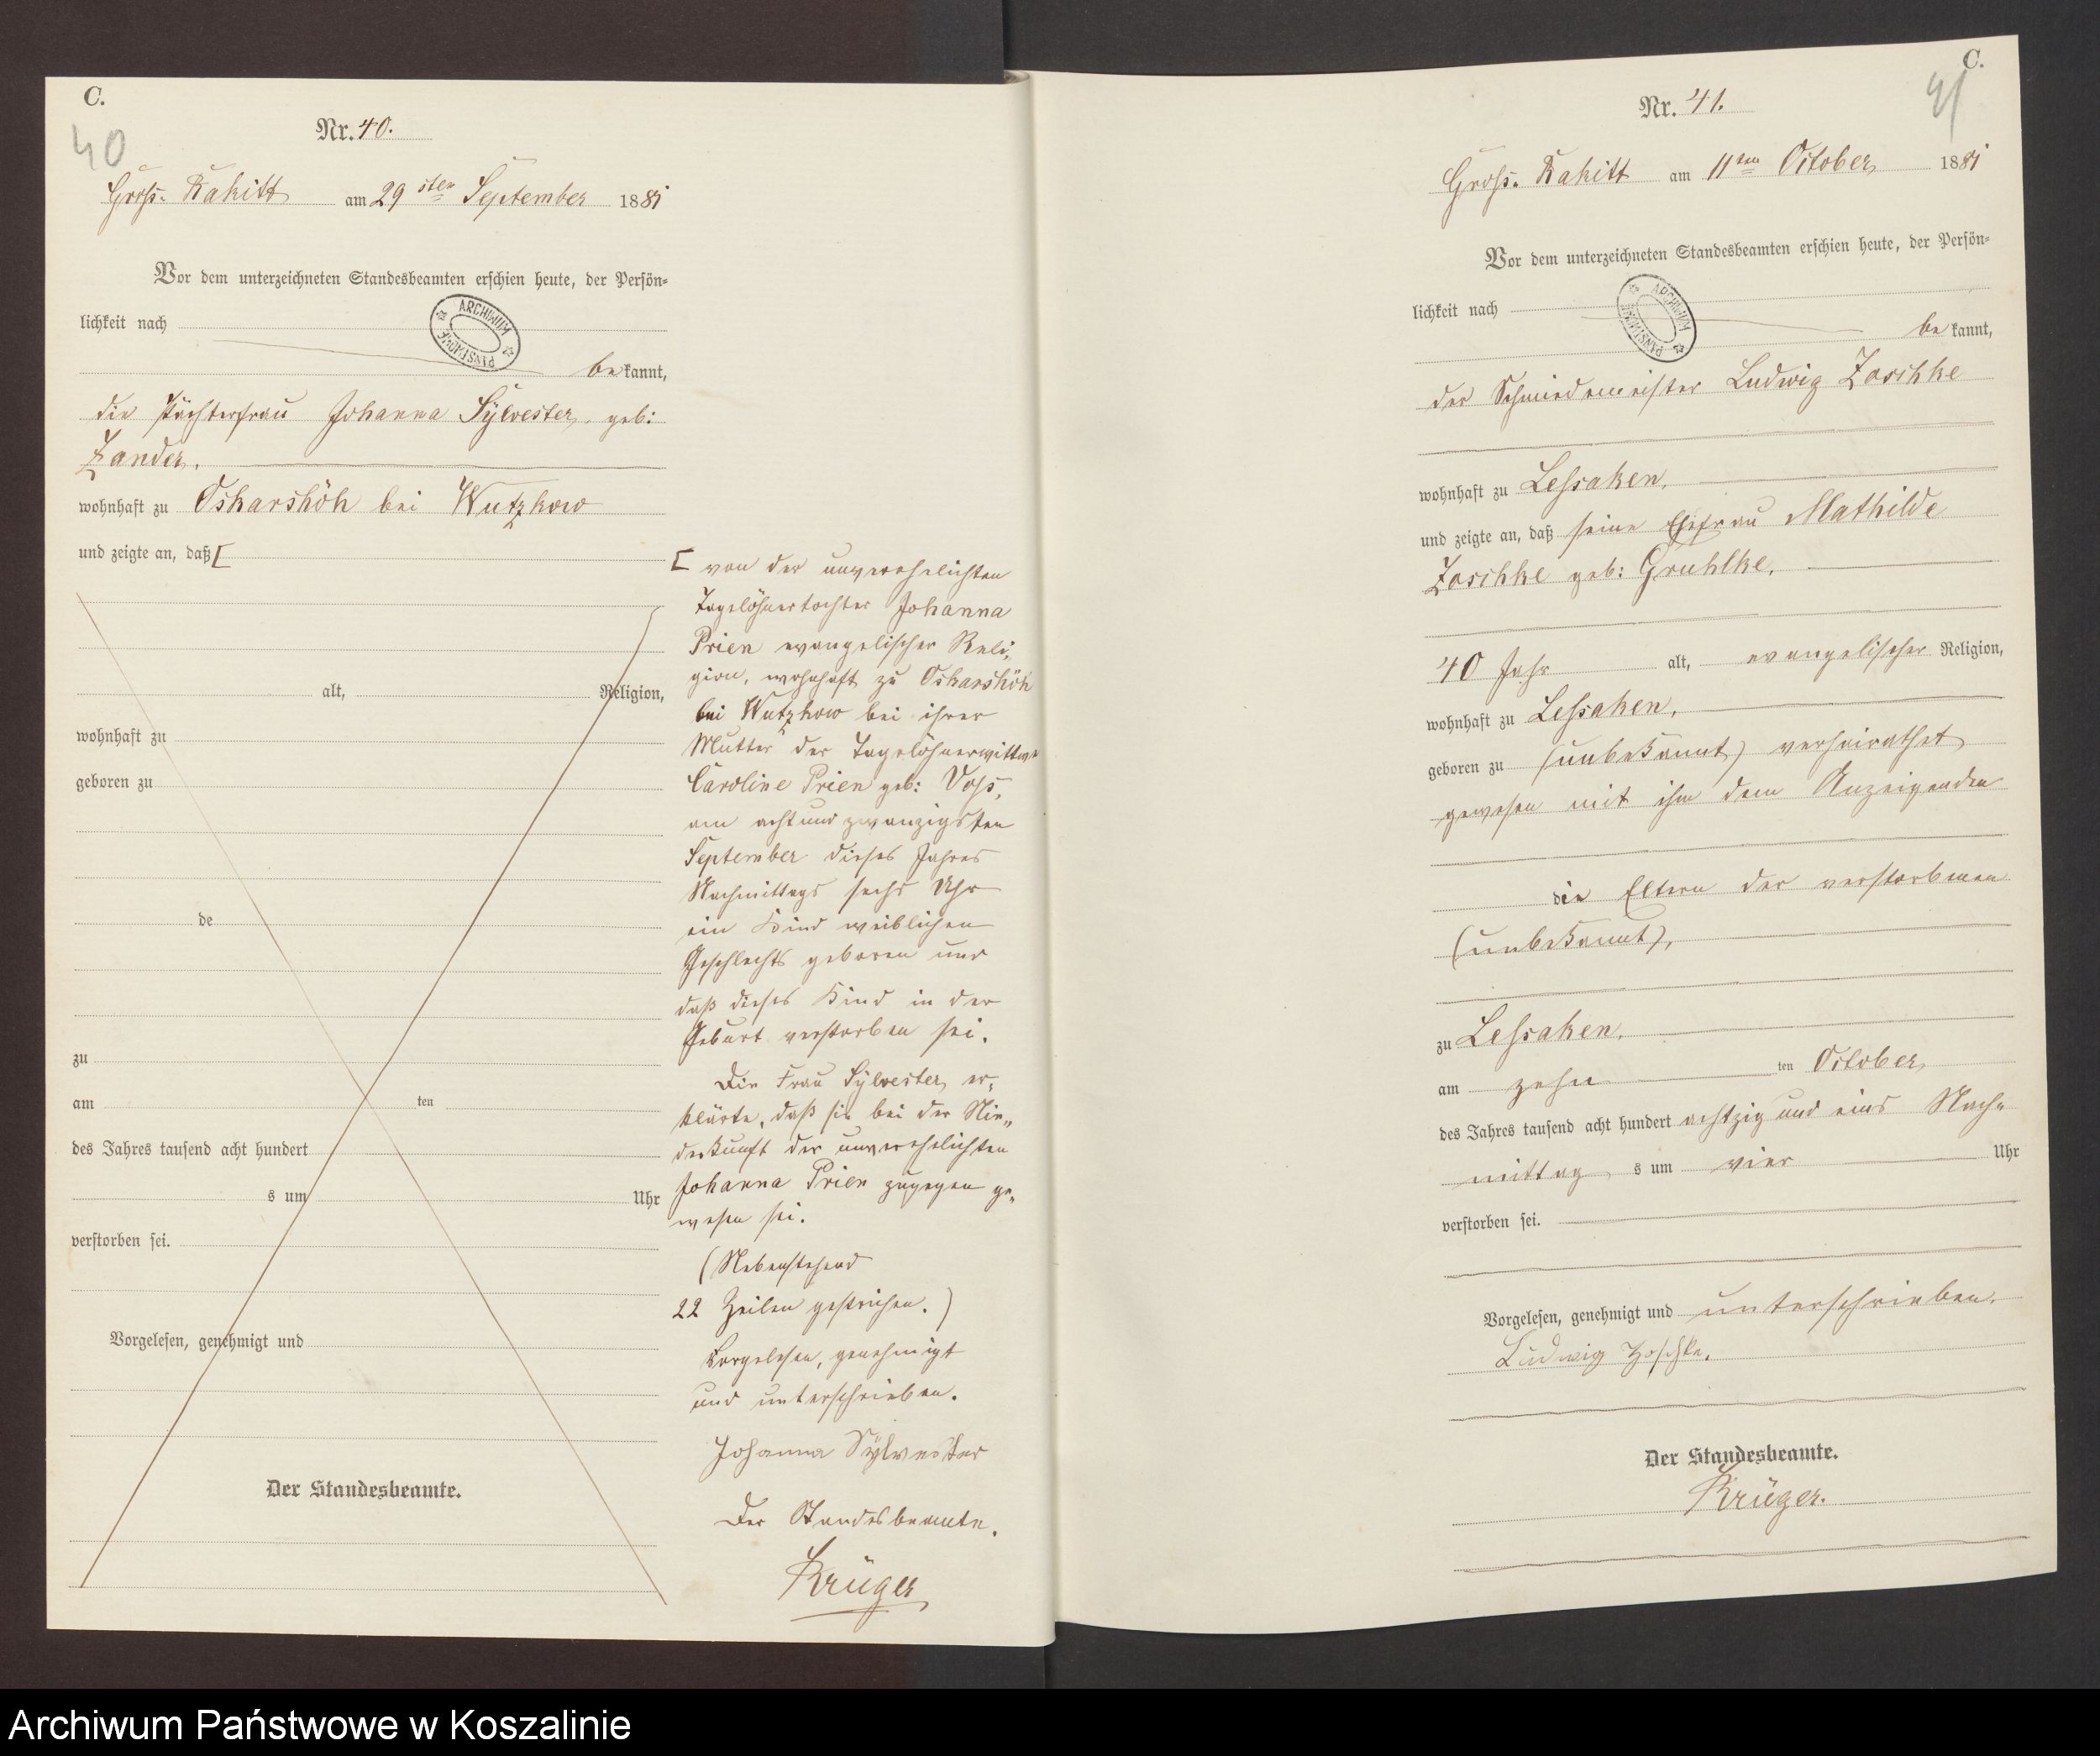 C.
40
Nr. 40.
Gross-Rakitt am 29sten September 1881
Vor dem unterzeichneten Standesbeamten erschien heute, der Persön-
lichkeit nach
ARCHIWUM PAŃSTWOWE
be kannt,
die Pächterfrau Johanna Sylvester, geb:
Zander,
wohnhaft zu Oskarshöh bei Wutzkow
und zeigte an, daß [
alt, Religion,
wohnhaft zu
geboren zu
de
zu
am ten
des Jahres tausend acht hundert
s um Uhr
verstorben sei.
Vorgelesen, genehmigt und
Der Standesbeamte.
[ von der unverehelichten
Tagelöhnertochter Johanna
Prien evangelischer Reli-
gion, wohnhaft zu Oskarshöh
bei Wutzkow bei ihrer
Mutter der Tagelöhnerwittwe
Caroline Prien geb: Voss,
am acht und zwanzigsten
September dieses Jahres
Nachmittags sechs Uhr
ein Kind weiblichen
Geschlechts geboren und
daß dieses Kind in der
Geburt verstorben sei.
Die Frau Sylvester er-
klärte, daß sie bei der Nie-
derkunft der unverehelichten
Johanna Prien zugegen ge-
wesen sei.
(Nebenstehend
22 Zeilen gestrichen.)
Vorgelesen, genehmigt
und unterschrieben.
Johanna Sylvester
Der Standesbeamte.
Krüger
C.
41
Nr. 41.
Gross-Rakitt am 11ten October 1881
Vor dem unterzeichneten Standesbeamten erschien heute, der Persön-
lichkeit nach
ARCHIWUM PAŃSTWOWE
be kannt,
der Schmiedemeister Ludwig Zoschke
wohnhaft zu Lessaken,
und zeigte an, daß seine Ehefrau Mathilde
Zoschke geb: Gruhlke,
40 Jahr alt, evangelischer Religion,
wohnhaft zu Lessaken,
geboren zu (unbekannt) verheirathet
gewesen mit ihm dem Anzeigenden
die Eltern der verstorbenen
(unbekannt),
zu Lessaken,
am zehn ten October
des Jahres tausend acht hundert achtzig und eins Nach-
mittag s um vier Uhr
verstorben sei.
Vorgelesen, genehmigt und unterschrieben.
Ludwig Zoschke.
Der Standesbeamte.
Krüger.
Archiwum Państwowe w Koszalinie